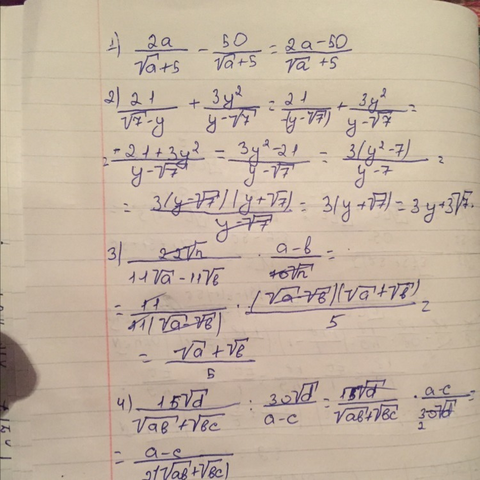 1) 2a/(√a+5) - 50/(√a+5) = (2a-50)/(√a+5)
2) 21/(√7-y) + 3y²/(y-√7) = 21/-(y-√7) + 3y²/(y-√7) =
= (-21+3y²)/(y-√7) = (3y²-21)/(y-√7) = 3(y²-7)/(y-7) =
= 3(y-√7)(y+√7)/(y-√7) = 3(y+√7) = 3y+3√7.
3) 22√n/(11√a-11√b) · (a-b)/(10√n) =
= 11/(11(√a-√b)) · (√a-√b)(√a+√b)/5 =
= (√a+√b)/5
4) 15√d/(√ab+√bc) : 30√d/(a-c) = 15√d/(√ab+√bc) · (a-c)/(30√d) =
2
= (a-c)/(2(√ab+√bc))